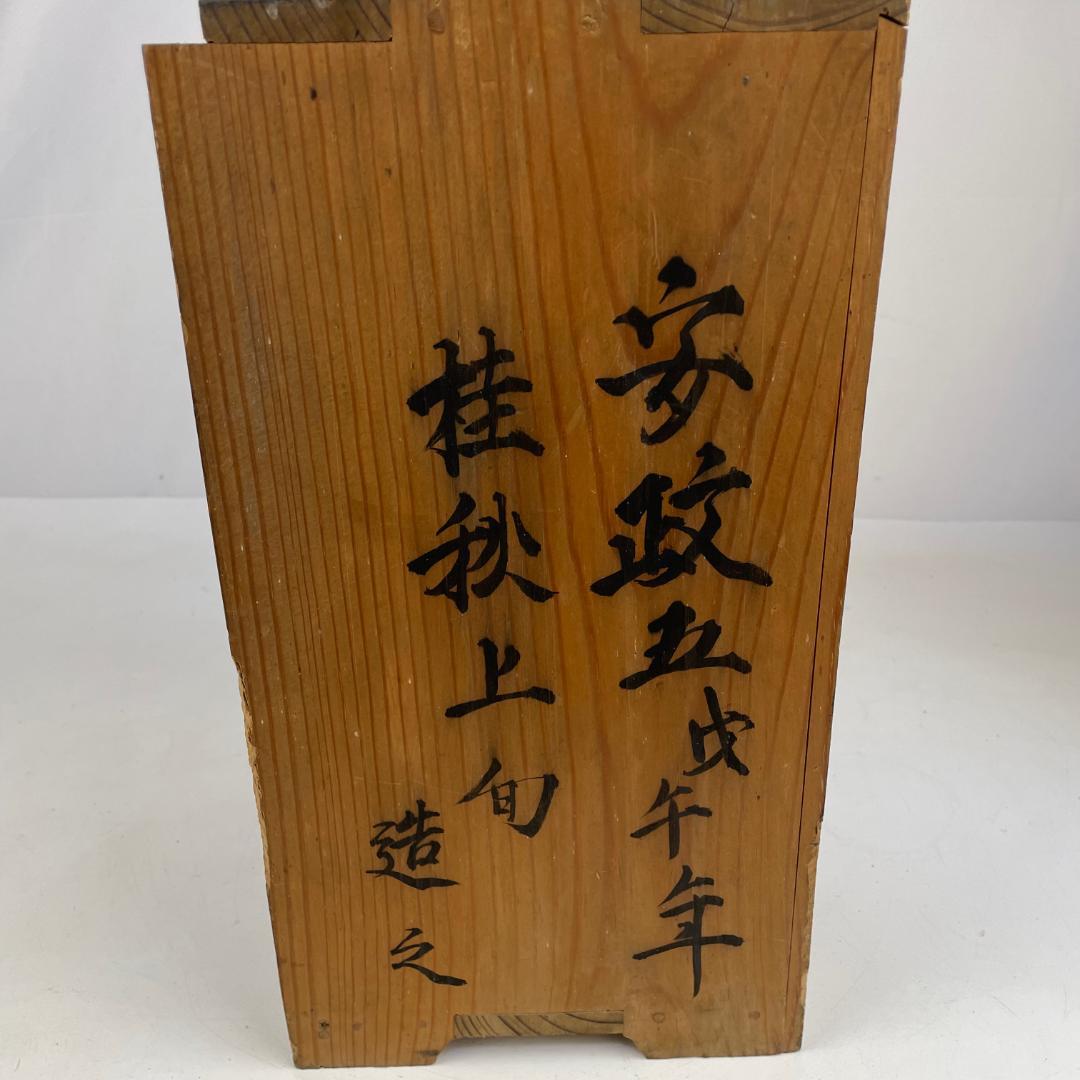 安政五戊午年
桂秋上旬
造之